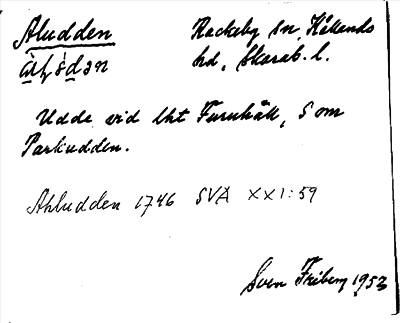 Aludden Rackeby sn, Kållands
hd, Skarab. l.
Udde vid Lht Furuhäll, S om
Parkudden.
Ahludden 1746 SVÄ XXI:59
Sven Friberg 1953